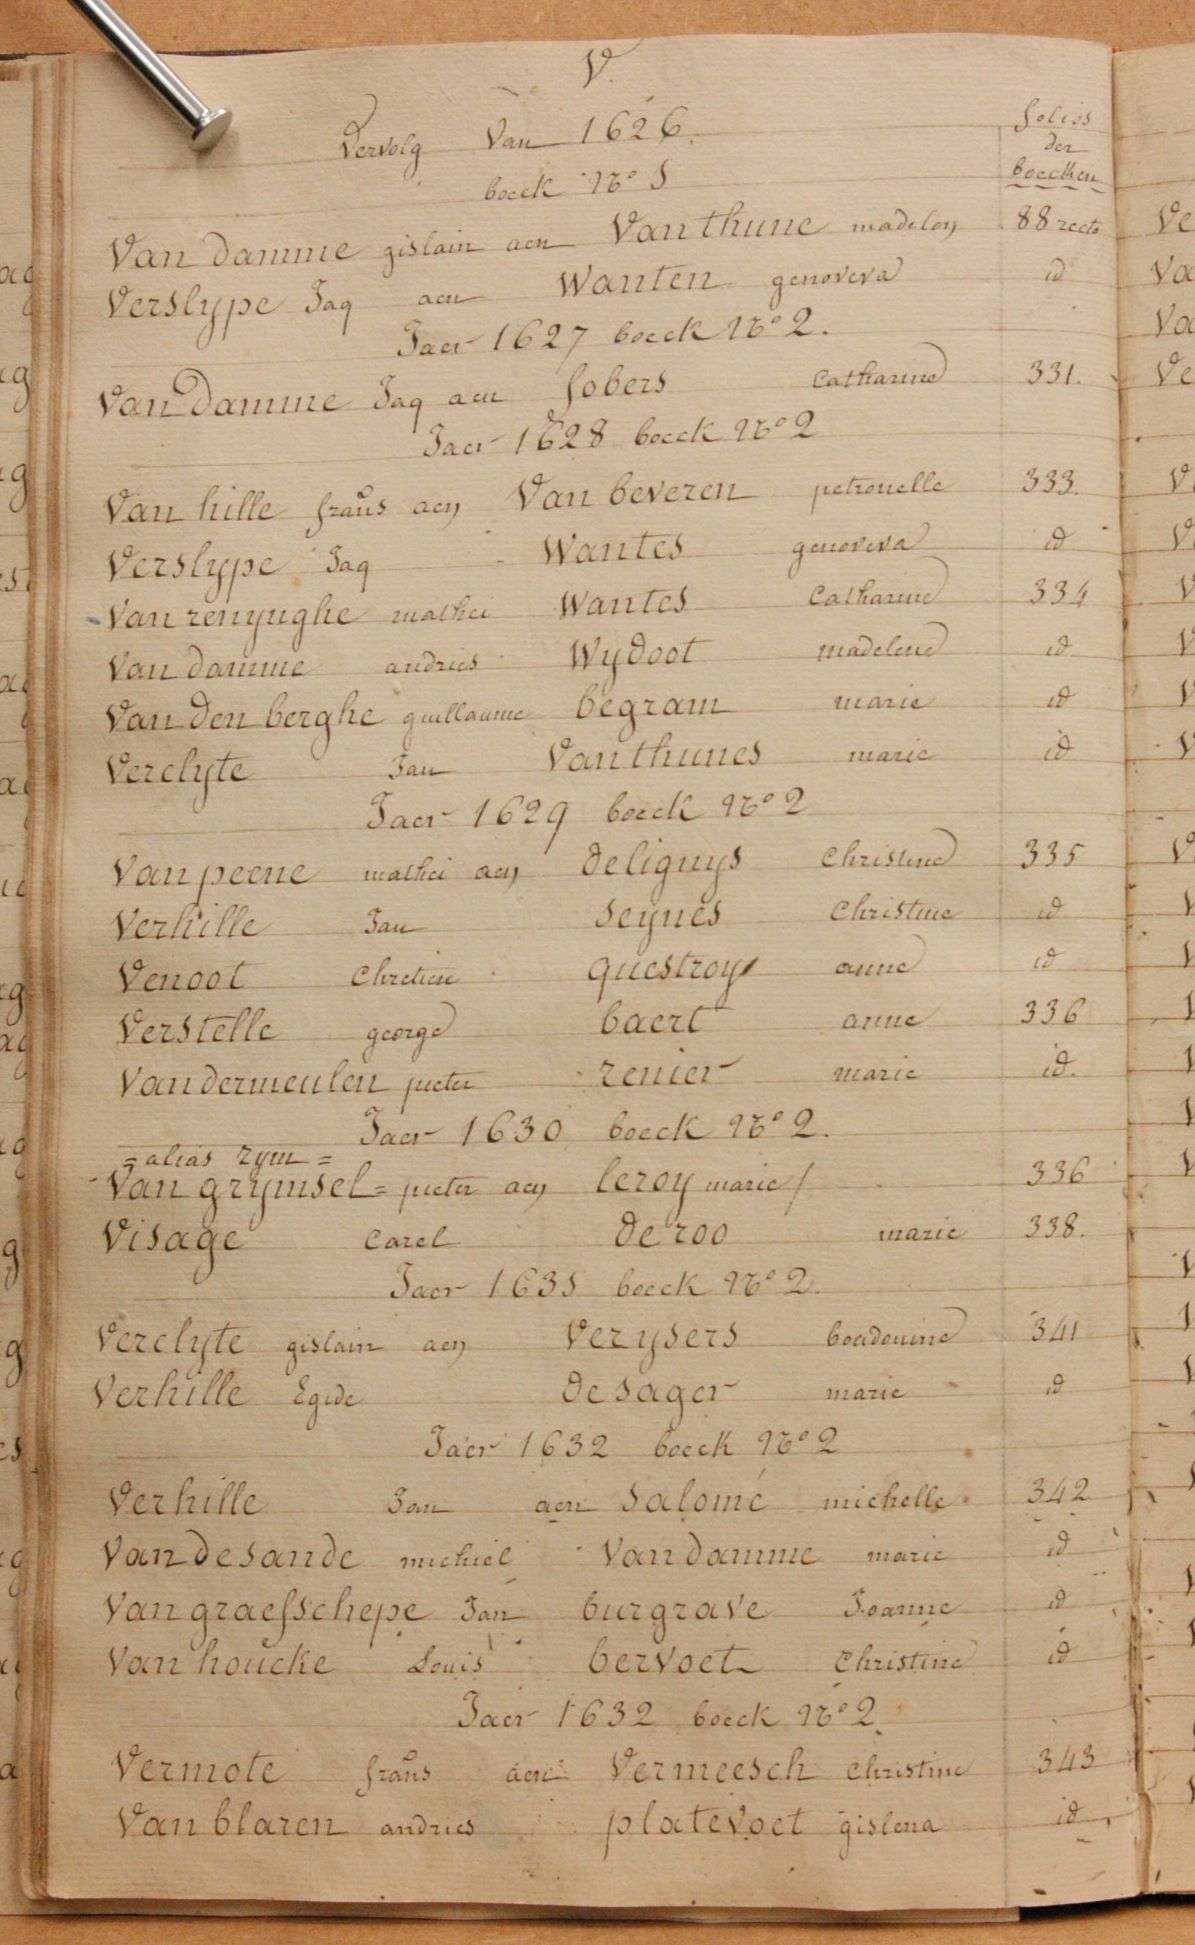 V.
Vervolg Van 1626.
folios
der
boecken
boeck No 1
Van Damme gislain aen Van thune madelon 88 recto
Verslype Jaq aen Wanten genoveva id
Jaer 1627 boeck No 2.
Van Damme Jaq aen sobers Catharine 331.
Jaer 1628 boeck No 2
Van hille fraňs aen Van beveren petronelle 333.
Verslype Jaq Wantes genoveva id
Van renynghe mathei Wantes Catharine 334
Van damme andries Wydoot madelene id
Van Den berghe guillaume begram marie id
Verclyte Jan Van thunes marie id
Jaer 1629 boeck No 2
Van peene mathei aen Delignys Christine 335
Verhille Jan Seynes Christine id
Venoot Chretien questroy anne id
Verstelle george baert anne 336
Van dermeulen pieter renier marie id.
Jaer 1630 boeck No 2.
= alias rym =
Van grymsel = pieter aen leroy marie / 336
Visage Carel De roo marie 338.
Jaer 1631 boeck No 2.
Verclyte gislain aen Verysers boudouine 341
Verhille Egide De sager marie id
Jaer 1632 boeck No 2
Verhille Jan aen Salomé michelle 342
Van de sande michiel Van damme marie id
Van graefschepe Jan burgrave Joanne id
Van houcke Louis bervoet Christine id
Jaer 1632 boeck No 2
Vermote fraňs aen Vermeesch Christine 343
Van blaren andries platevoet gislena id